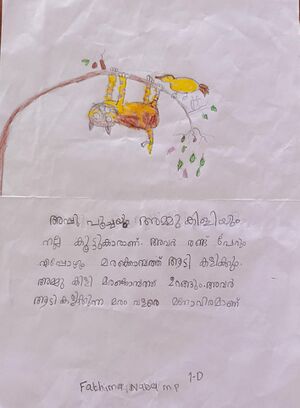 അപ്പു പൂച്ചയും അമ്മു കിളിയും
നല്ല കൂട്ടുകാരാണ്. അവർ രണ്ട് പേരും
എപ്പോഴും മരക്കൊമ്പത്ത് ആടി കളിക്കും.
അമ്മു കിളി മരക്കൊമ്പത്ത് അവർ
ആടി കളിക്കുന്ന മരം വളരെ മനോവിരമാണ്
1-D
Fathima Nawa M P